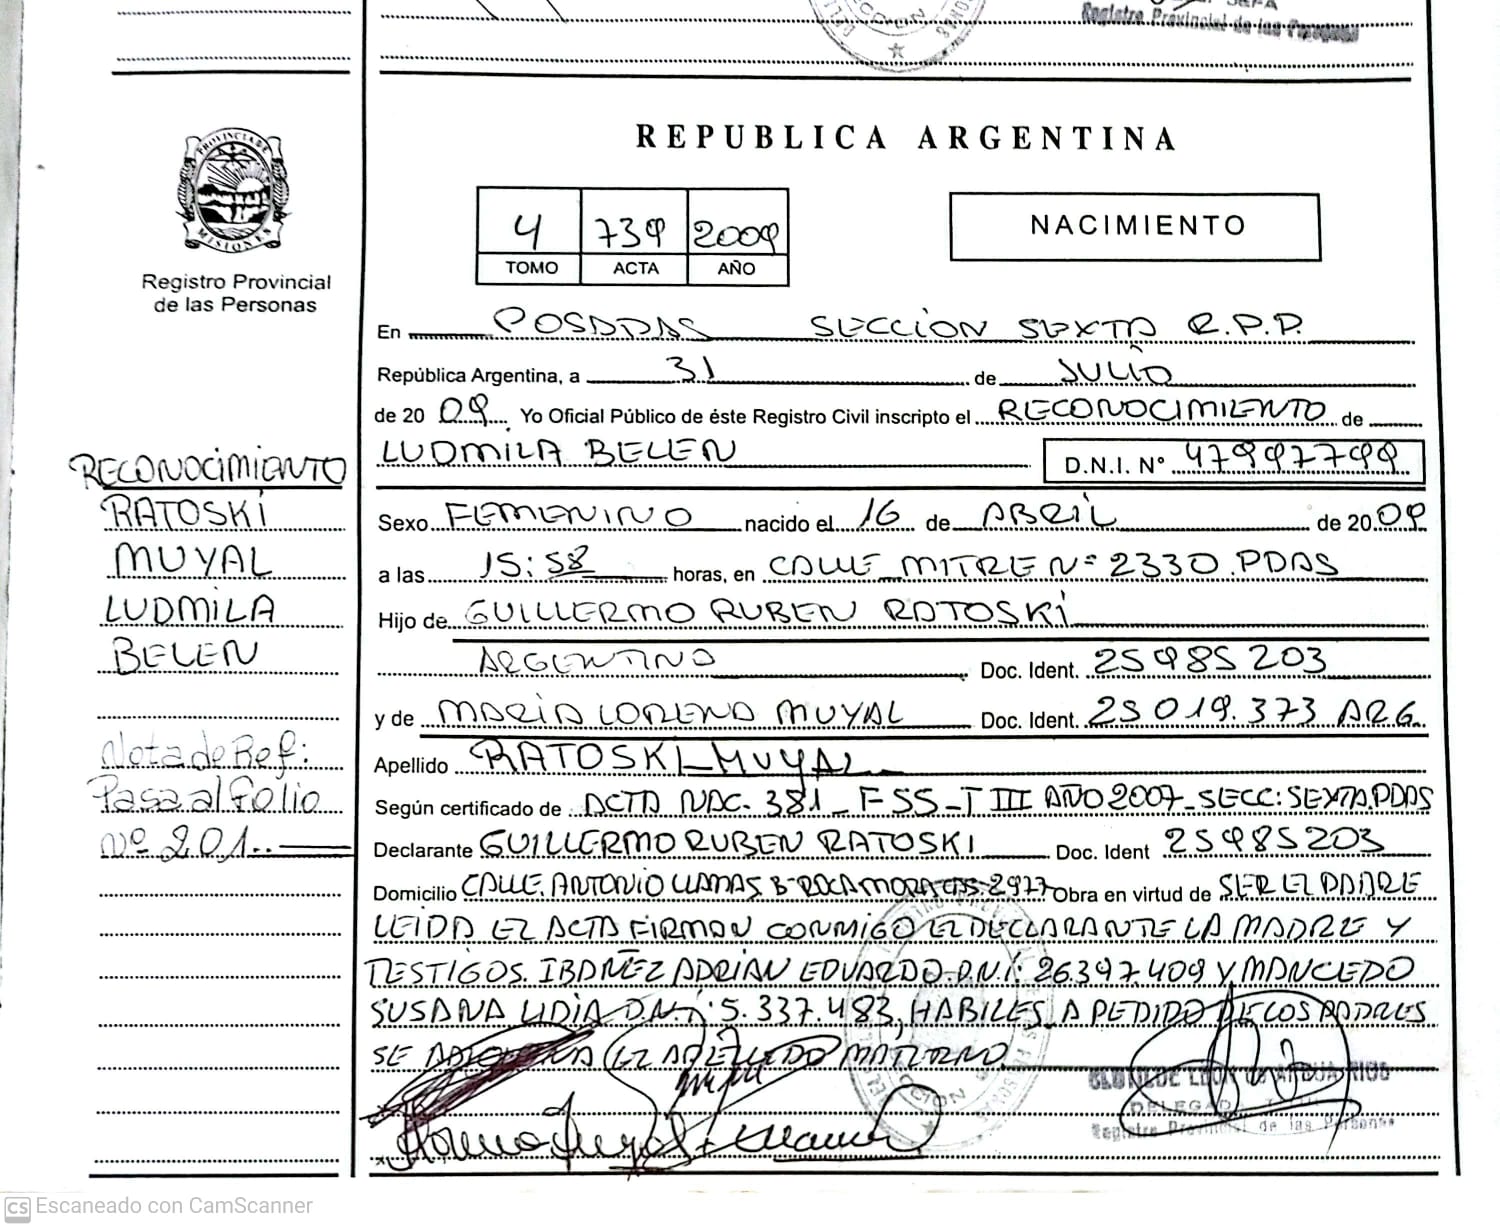 Registro Provincial de las Personas
REPUBLICA ARGENTINA
PROVINCIA DE
MISIONES
Registro Provincial
de las Personas
4 739 2009
TOMO ACTA AÑO
NACIMIENTO
En POSADAS SECCION SEXTA R.P.P.
República Argentina, a 31 de JULIO
de 20 09 Yo Oficial Público de éste Registro Civil inscripto el RECONOCIMIENTO de
LUDMILA BELEN D.N.I. N° 47997799
Sexo FEMENINO nacido el 16 de ABRIL de 20 09
a las 15:58 horas, en CALLE MITRE N° 2330.PDAS
Hijo de GUILLERMO RUBEN RATOSKI
ARGENTINO Doc. Ident. 25985203
y de MARIA LORENA MUYAL Doc. Ident. 25019.373 ARG.
Apellido RATOSKI_MUYAL
Según certificado de ACTA NAC. 381_F55_T III AÑO 2007_SECC: SEXTA.PDAS
Declarante GUILLERMO RUBEN RATOSKI Doc. Ident 25985203
Domicilio CALLE. ANTONIO LLAMAS B-ROCAMORA CAS. 2977 Obra en virtud de SER EL PADRE
LEIDA EL ACTA FIRMAN CONMIGO EL DECLARANTE LA MADRE Y
TESTIGOS. IBAÑEZ ADRIAN EDUARDO.D.N.I: 26.397.409 Y MANCEDO
SUSANA LIDIA D.N.I: 5.337.483, HABILES_A PEDIDO DE LOS PADRES
SE EL APELLIDO MATERNO
DELEGADA
Registro Provincial de las Personas
RECONOCIMIENTO
RATOSKI
MUYAL
LUDMILA
BELEN
Nota de Ref:
Pasa al folio
Nº 201.
CS Escaneado con CamScanner